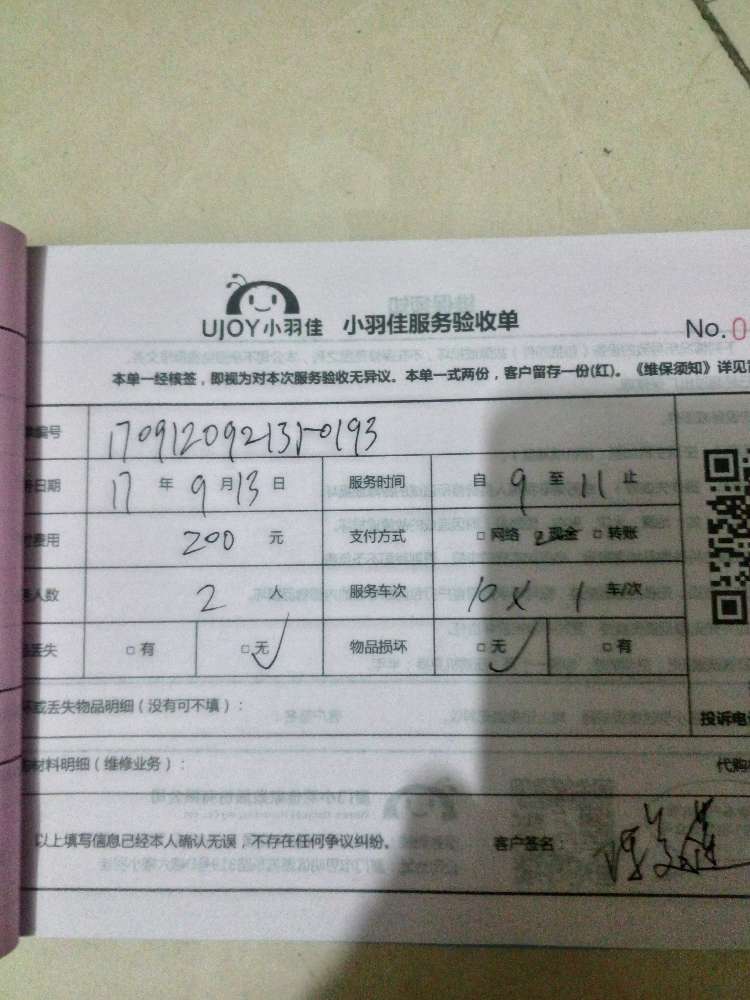 UJOY小羽佳 小羽佳服务验收单
No. 0
本单一经核签，即视为对本次服务验收无异议。本单一式两份，客户留存一份(红)。《维保须知》详见
编号 170912092135-0193
日期 17 年 9 月 13 日 服务时间 自 9 至 11 止
费用 200 元 支付方式 □ 网络 □ 现金 □ 转账
人数 2 人 服务车次 10 × 1 车/次
丢失 □ 有 □ 无 ✓ 物品损坏 □ 无 ✓ □ 有
或丢失物品明细（没有可不填）：
投诉电
材料明细（维修业务）：
代购
以上填写信息已经本人确认无误，不存在任何争议纠纷。 客户签名：